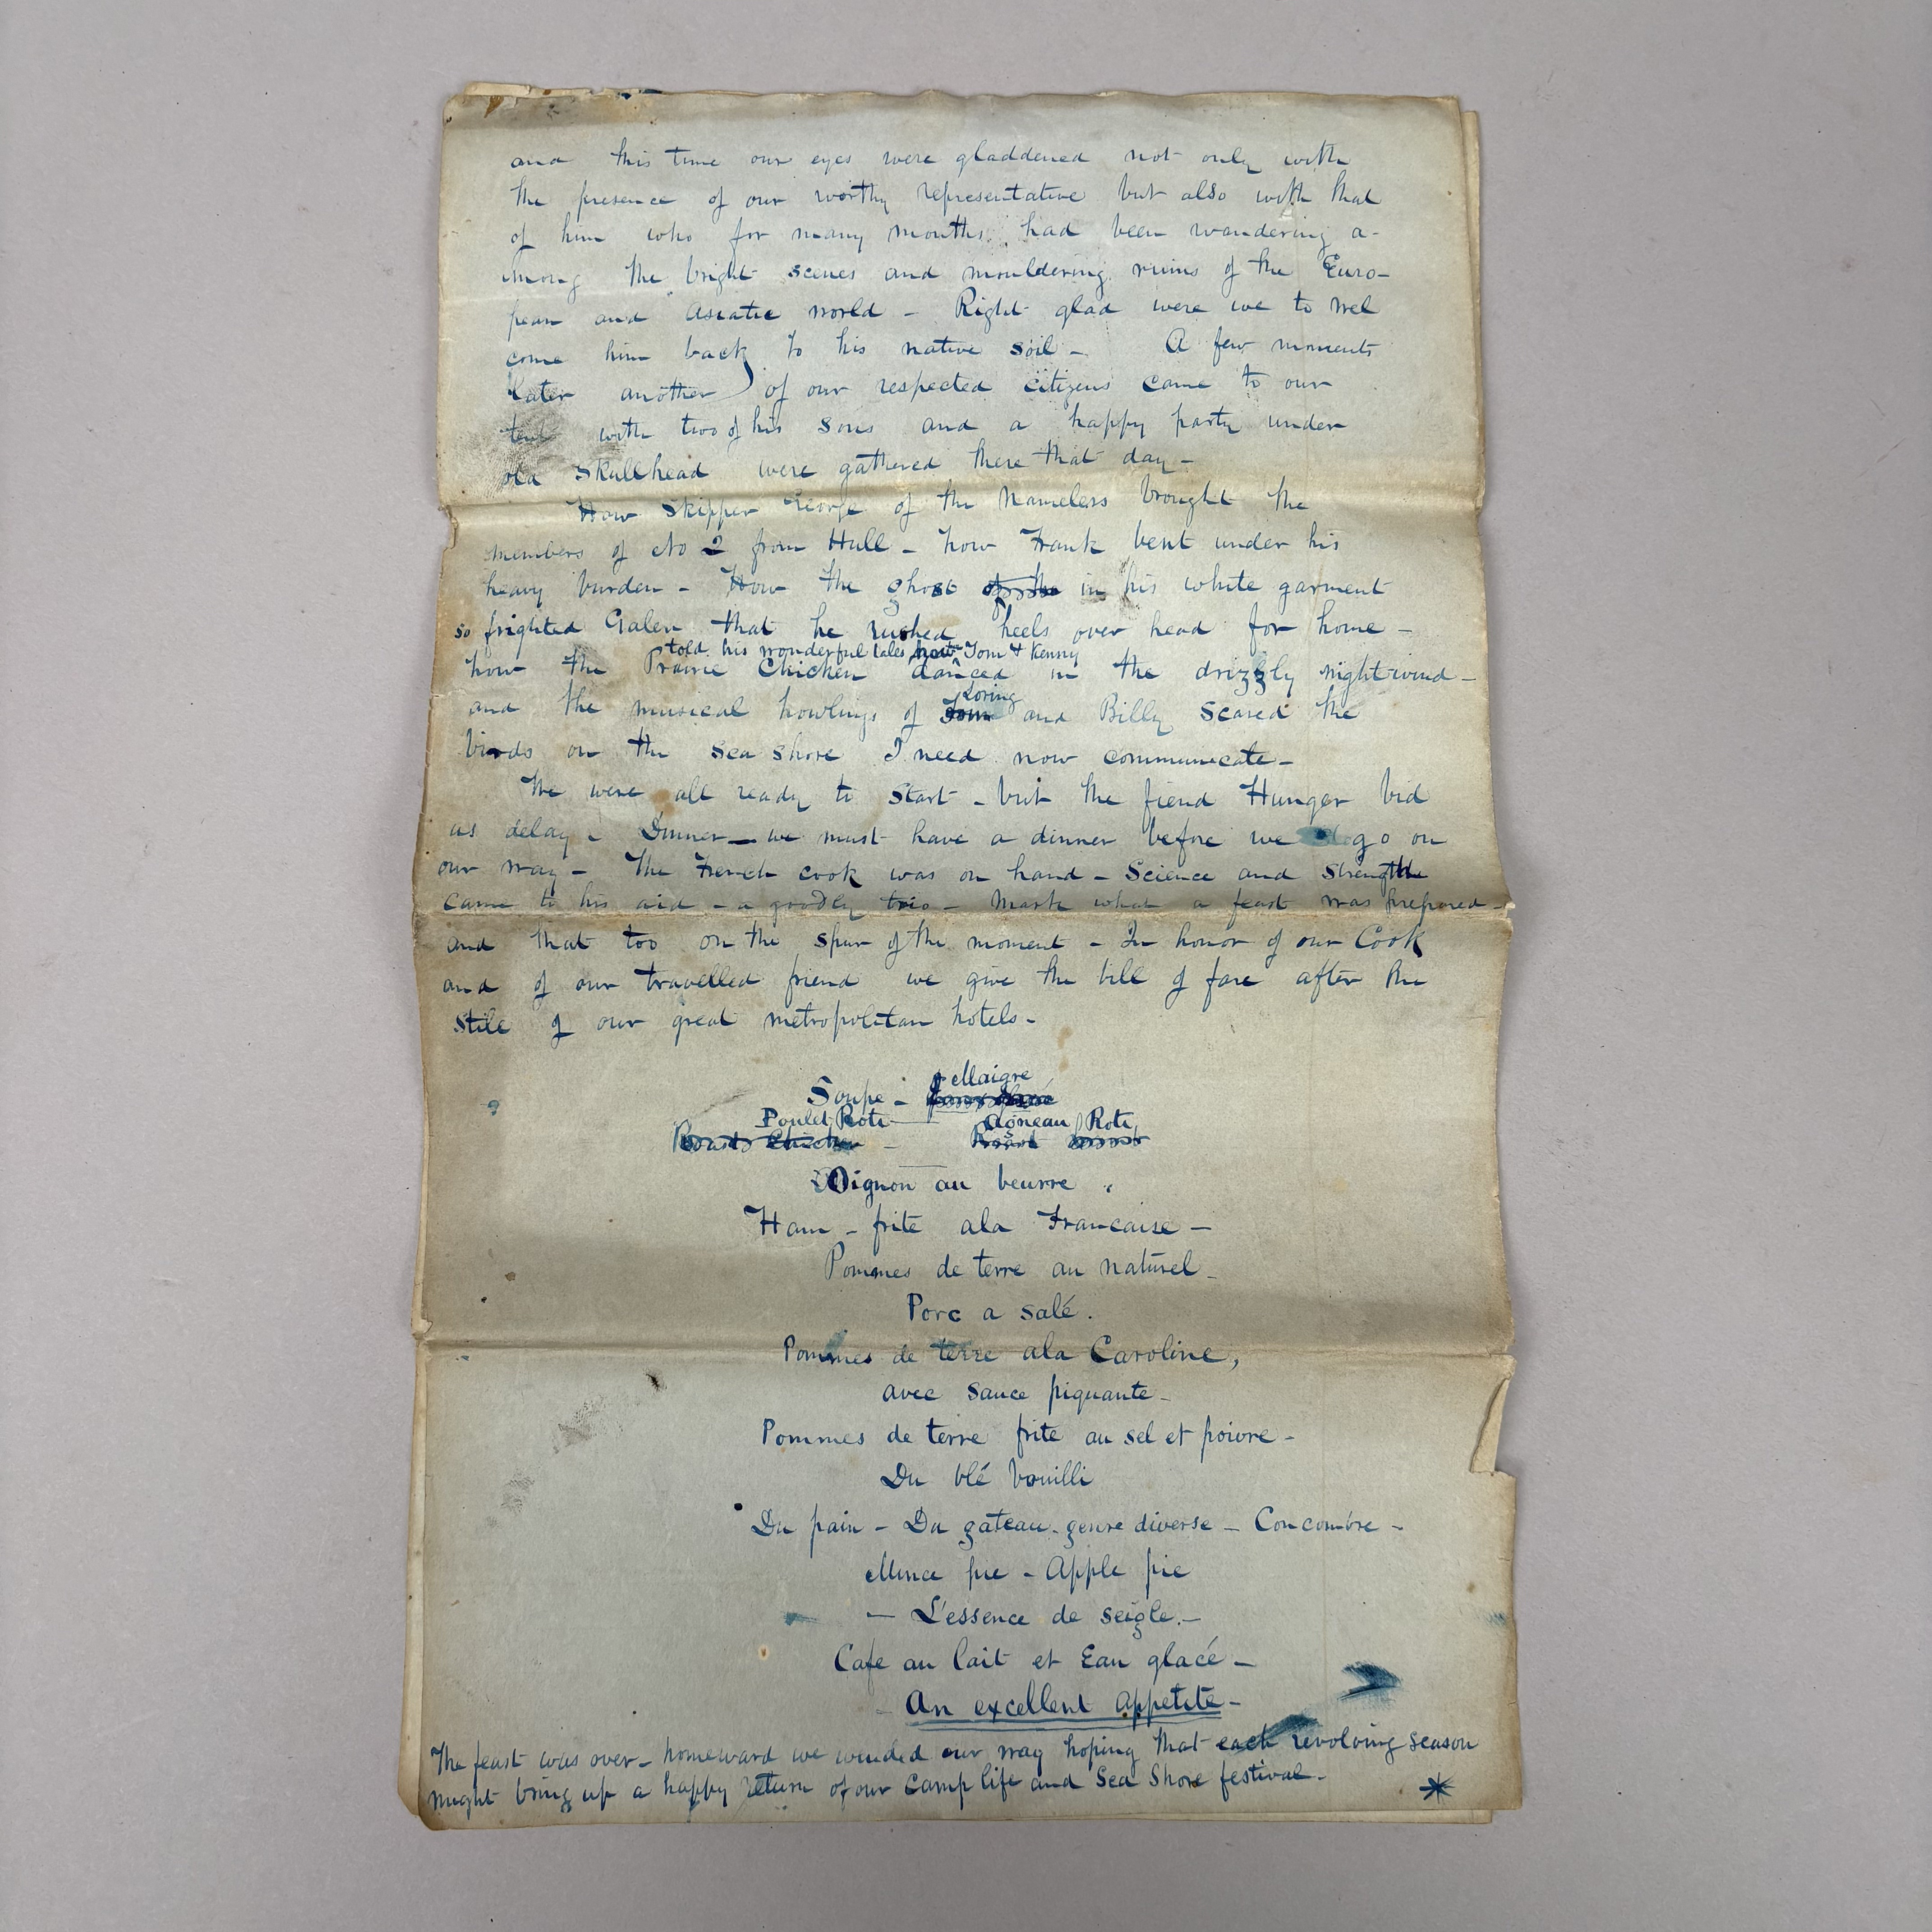 and this time our eyes were gladdened not only with
the presence of our worthy representative but also with that
of him who for many months had been wandering a-
mong the bright scenes and mouldering ruins of the Euro-
pean and Asiatic world - Right glad were we to wel
come him back to his native soil - A few moments
later another of our respected citizens came to our
tent with two of his sons and a happy party under
old Skullhead were gathered there that day -
How Skipper George of the Nameless brought the
members of No 2 from Hull - how Frank bent under his
heavy burden - How the ghost in his white garment
so frighted Galen that he rushed heels over head for home -
told his wonderful tales how Tom & Kenny
how the Prairie Chicken danced in the drizzly night wind -
Loring
and the musical howlings of Tom and Billy scared the
birds on the sea shore I need now communicate -
We were all ready to start - but the fiend Hunger bid
us delay - Dinner - we must have a dinner before we go on
our way - The French cook was on hand - Science and Strength
came to his aid - a goodly trio - Mark what a feast was prepared -
and that too on the spur of the moment - In honor of our Cook
and of our travelled friend we give the bill of fare after the
stile of our great metropolitan hotels -
Maigre
Soupe -
Poulet Roti - Agneau Roti
Roast Chicken - Roast
Oignon au beurre
Ham - frite ala Francaise -
Pommes de terre au naturel -
Porc a salé.
Pommes de terre ala Caroline,
avec sauce piquante -
Pommes de terre frite au sel et poivre -
Du blé bouilli
Du pain - Du gateau - genre diverse - Concombre -
Mince pie - Apple pie
- L'essence de seigle. -
Cafe au lait et Eau glacé -
An excellent appetite -
The feast was over - homeward we winded our way hoping that each revolving season
might bring up a happy return of our camp life and Sea Shore festival - *